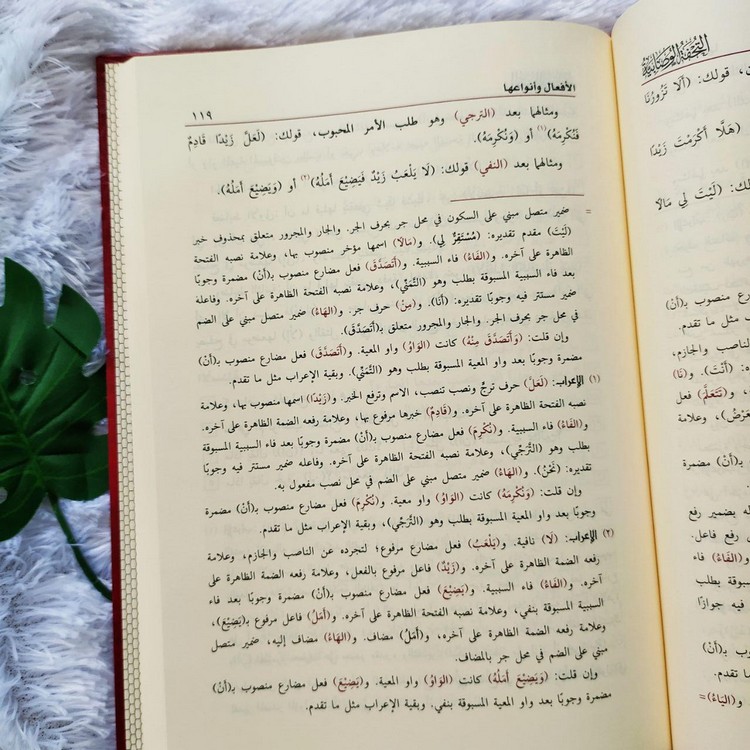 الأفعال وأنواعها
١١٩
ومثالهما بعد (الترجي) وهو طلب الأمر المحبوب، قولك: (لَعَلَّ زَيْدًا قَادِمٌ
فَنُكْرِمَهُ)(١) أو (وَنُكْرِمَهُ).
ومثالهما بعد (النفي) قولك: (لَا يَلْعَبُ زَيْدٌ فَيَضِيْعَ أَمَلُهُ)(٢) أو (وَيَضِيْعَ أَمَلُهُ).
= ضمير متصل مبني على السكون في محل جر بحرف الجر. والجار والمجرور متعلق بمحذوف خبر
(لَيْتَ) مقدم تقديره: (مُسْتَقِرٌّ لِي). و(مَالًا) اسمها مؤخر منصوب بها، وعلامة نصبه الفتحة
الظاهرة على آخره. و(الفَاءُ) فاء السببية. و(أَتَصَدَّقَ) فعل مضارع منصوب بـ(أَنْ) مضمرة وجوبًا
بعد فاء السببية المسبوقة بطلب وهو (التَّمَنِّي)، وعلامة نصبه الفتحة الظاهرة على آخره. وفاعله
ضمير مستتر فيه وجوبًا تقديره: (أَنَا). و(مِنْ) حرف جر. و(الهَاءُ) ضمير متصل مبني على الضم
في محل جر بحرف الجر. والجار والمجرور متعلق بـ(أَتَصَدَّقَ).
وإن قلت: (وَأَتَصَدَّقَ مِنْهُ) كانت (الوَاوُ) واو المعية. و(أَتَصَدَّقَ) فعل مضارع منصوب بـ(أَنْ)
مضمرة وجوبًا بعد واو المعية المسبوقة بطلب وهو (التَّمَنِّي). وبقية الإعراب مثل ما تقدم.
(١) الإعراب: (لَعَلَّ) حرف ترجٍّ ونصب تنصب، الاسم وترفع الخبر. و(زَيْدًا) اسمها منصوب بها، وعلامة
نصبه الفتحة الظاهرة على آخره. و(قَادِمٌ) خبرها مرفوع بها، وعلامة رفعه الضمة الظاهرة على آخره.
و(الفَاءُ) فاء السببية. و(نُكْرِمَ) فعل مضارع منصوب بـ(أَنْ) مضمرة وجوبًا بعد فاء السببية المسبوقة
بطلب وهو (التَّرَجِّي)، وعلامة نصبه الفتحة الظاهرة على آخره. وفاعله ضمير مستتر فيه وجوبًا
تقديره: (نَحْنُ). و(الهَاءُ) ضمير متصل مبني على الضم في محل نصب مفعول به.
وإن قلت: (وَنُكْرِمَهُ) كانت (الوَاوُ) واو معية. و(نُكْرِمَ) فعل مضارع منصوب بـ(أَنْ) مضمرة
وجوبًا بعد واو المعية المسبوقة بطلب وهو (التَّرَجِّي)، وبقية الإعراب مثل ما تقدم.
(٢) الإعراب: (لَا) نافية. و(يَلْعَبُ) فعل مضارع مرفوع؛ لتجرده عن الناصب والجازم، وعلامة
رفعه الضمة الظاهرة على آخره. و(زَيْدٌ) فاعل مرفوع بالفعل، وعلامة رفعه الضمة الظاهرة على
آخره. و(الفَاءُ) فاء السببية. و(يَضِيْعَ) فعل مضارع منصوب بـ(أَنْ) مضمرة وجوبًا بعد فاء
السببية المسبوقة بنفي، وعلامة نصبه الفتحة الظاهرة على آخره. و(أَمَلُ) فاعل مرفوع بـ(يَضِيْعَ)،
وعلامة رفعه الضمة الظاهرة على آخره، و(أَمَلُ) مضاف. و(الهَاءُ) مضاف إليه، ضمير متصل
مبني على الضم في محل جر بالمضاف.
وإن قلت: (وَيَضِيْعَ أَمَلُهُ) كانت (الوَاوُ) واو المعية. و(يَضِيْعَ) فعل مضارع منصوب بـ(أَنْ)
مضمرة وجوبًا بعد واو المعية المسبوقة بنفي. وبقية الإعراب مثل ما تقدم.
التحفة الوصابية
، قولك: (أَلَا تَزُوْرُنَا
(هَلَّا أَكْرَمْتَ زَيْدًا
لك: (لَيْتَ لِي مَالًا
ع منصوب بـ(أَنْ)
ب مثل ما تقدم.
الناصب والجازم،
ره: (أَنْتَ). و(نَا)
، و(تَتَعَلَّمَ) فعل
عَرْضُ)، وعلامة
ب بـ(أَنْ) مضمرة
له بضمير رفع
ل رفع فاعل.
و(الفَاءُ) فاء
سبوقة بطلب
فيه جوازًا
وب بـ(أَنْ)
ا تقدم.
و(اليَاءُ)=